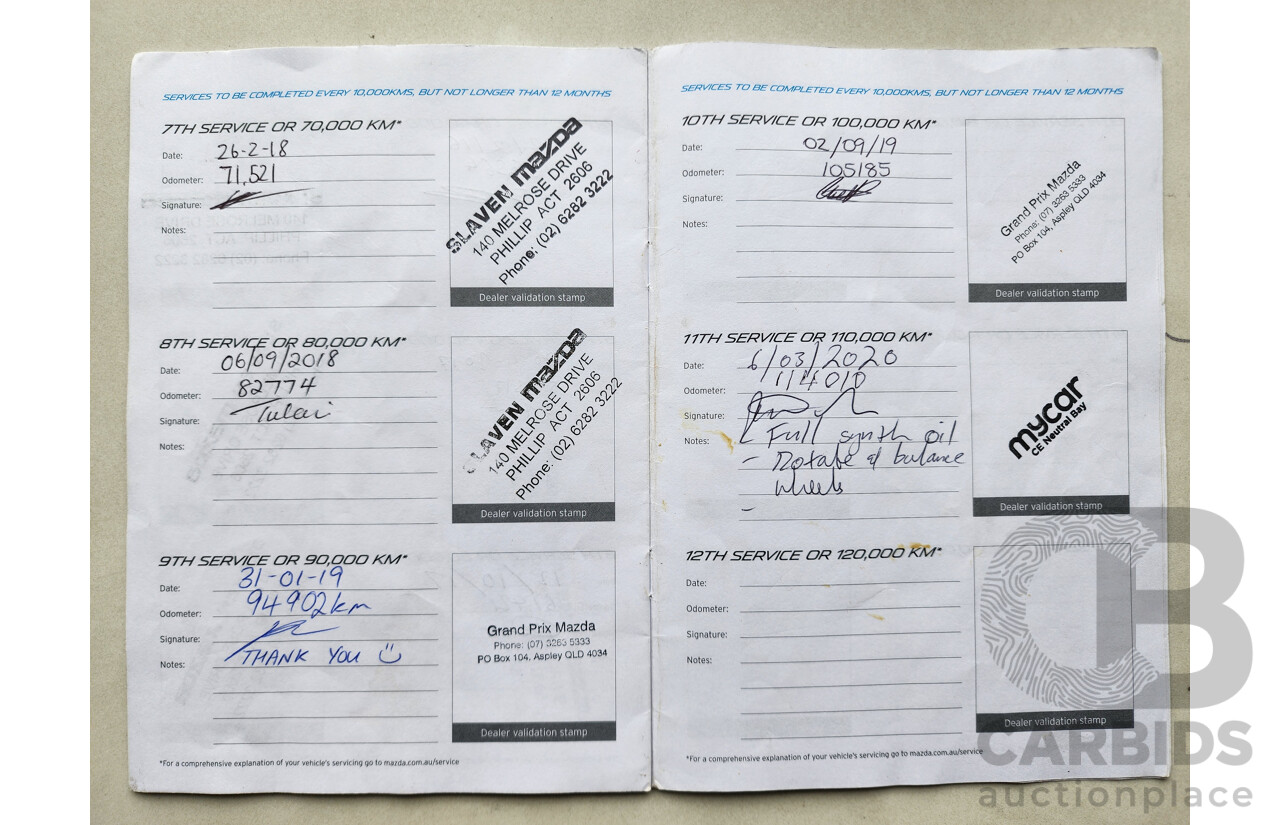 SERVICES TO BE COMPLETED EVERY 10,000KMS, BUT NOT LONGER THAN 12 MONTHS
7TH SERVICE OR 70,000 KM*
Date: 26-2-18
Odometer: 71,521
Signature:
Notes:
SLAVEN mazda
140 MELROSE DRIVE
PHILLIP ACT 2606
Phone: (02) 6282 3222
Dealer validation stamp
8TH SERVICE OR 80,000 KM*
Date: 06/09/2018
Odometer: 82774
Signature:
Notes:
SLAVEN mazda
140 MELROSE DRIVE
PHILLIP ACT 2606
Phone: (02) 6282 3222
Dealer validation stamp
9TH SERVICE OR 90,000 KM*
Date: 31-01-19
Odometer: 94902km
Signature:
Notes: THANK YOU
Grand Prix Mazda
Phone: (07) 3263 5333
PO Box 104, Aspley QLD 4034
Dealer validation stamp
*For a comprehensive explanation of your vehicle's servicing go to mazda.com.au/service
SERVICES TO BE COMPLETED EVERY 10,000KMS, BUT NOT LONGER THAN 12 MONTHS
10TH SERVICE OR 100,000 KM*
Date: 02/09/19
Odometer: 105185
Signature:
Notes:
Grand Prix Mazda
Phone: (07) 3263 5333
PO Box 104, Aspley QLD 4034
Dealer validation stamp
11TH SERVICE OR 110,000 KM*
Date: 6/03/2020
Odometer: 114010
Signature:
Notes: - Full synth oil
- Rotate & balance
wheels
-
mycar
CE Neutral Bay
Dealer validation stamp
12TH SERVICE OR 120,000 KM*
Date:
Odometer:
Signature:
Notes:
Dealer validation stamp
*For a comprehensive explanation of your vehicle's servicing go to mazda.com.au/service
CB
CARBIDS
auctionplace